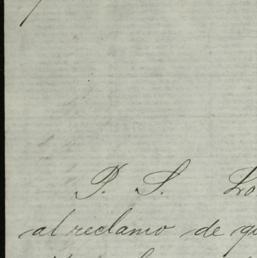 P. S. Lo
al reclamo de qu